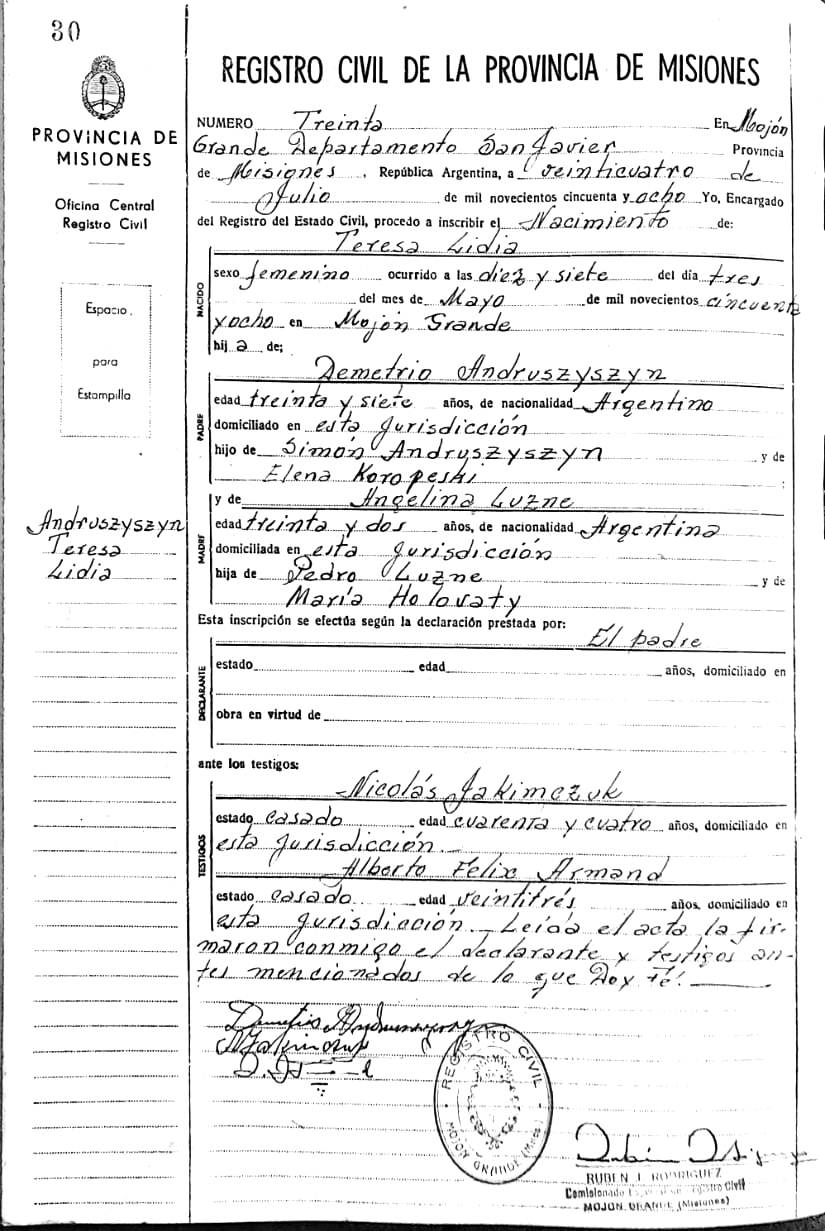 30
PROVINCIA DE
MISIONES
Oficina Central
Registro Civil
Espacio
para
Estampilla
Andruszyszyn
Teresa
Lidia
REGISTRO CIVIL DE LA PROVINCIA DE MISIONES
NUMERO Treinta En Mojón
Grande Departamento San Javier Provincia
de Misiones, República Argentina, a veinticuatro de
Julio de mil novecientos cincuenta y ocho Yo, Encargado
del Registro del Estado Civil, procedo a inscribir el Nacimiento de:
Teresa Lidia
NACIDO
sexo femenino ocurrido a las diez y siete del día tres
del mes de Mayo de mil novecientos cincuenta
y ocho en Mojón Grande
hij a de;
Demetrio Andruszyszyn
PADRE
edad treinta y siete años, de nacionalidad Argentino
domiciliado en esta Jurisdicción
hijo de Simón Andruszyszyn y de
Elena Koropeski
y de Angelina Luzne
MADRE
edad treinta y dos años, de nacionalidad Argentina
domiciliada en esta Jurisdicción
hija de Pedro Luzne y de
María Holovaty
Esta inscripción se efectúa según la declaración prestada por:
El padre
DECLARANTE
estado edad años, domiciliado en
obra en virtud de
ante los testigos:
Nicolás Jakimczuk
TESTIGOS
estado casado edad cuarenta y cuatro años, domiciliado en
esta Jurisdicción.-
Alberto Felix Armand
estado casado edad veintitrés años, domiciliado en
esta Jurisdicción.- Leída el acta la fir-
maron conmigo el declarante y testigos an-
tes mencionados de lo que Doy Fé.-
REGISTRO CIVIL
MOJON GRANDE (Mnes.)
RUBEN J. RODRIGUEZ
Registro Civil
MOJON GRANDE (Misiones)